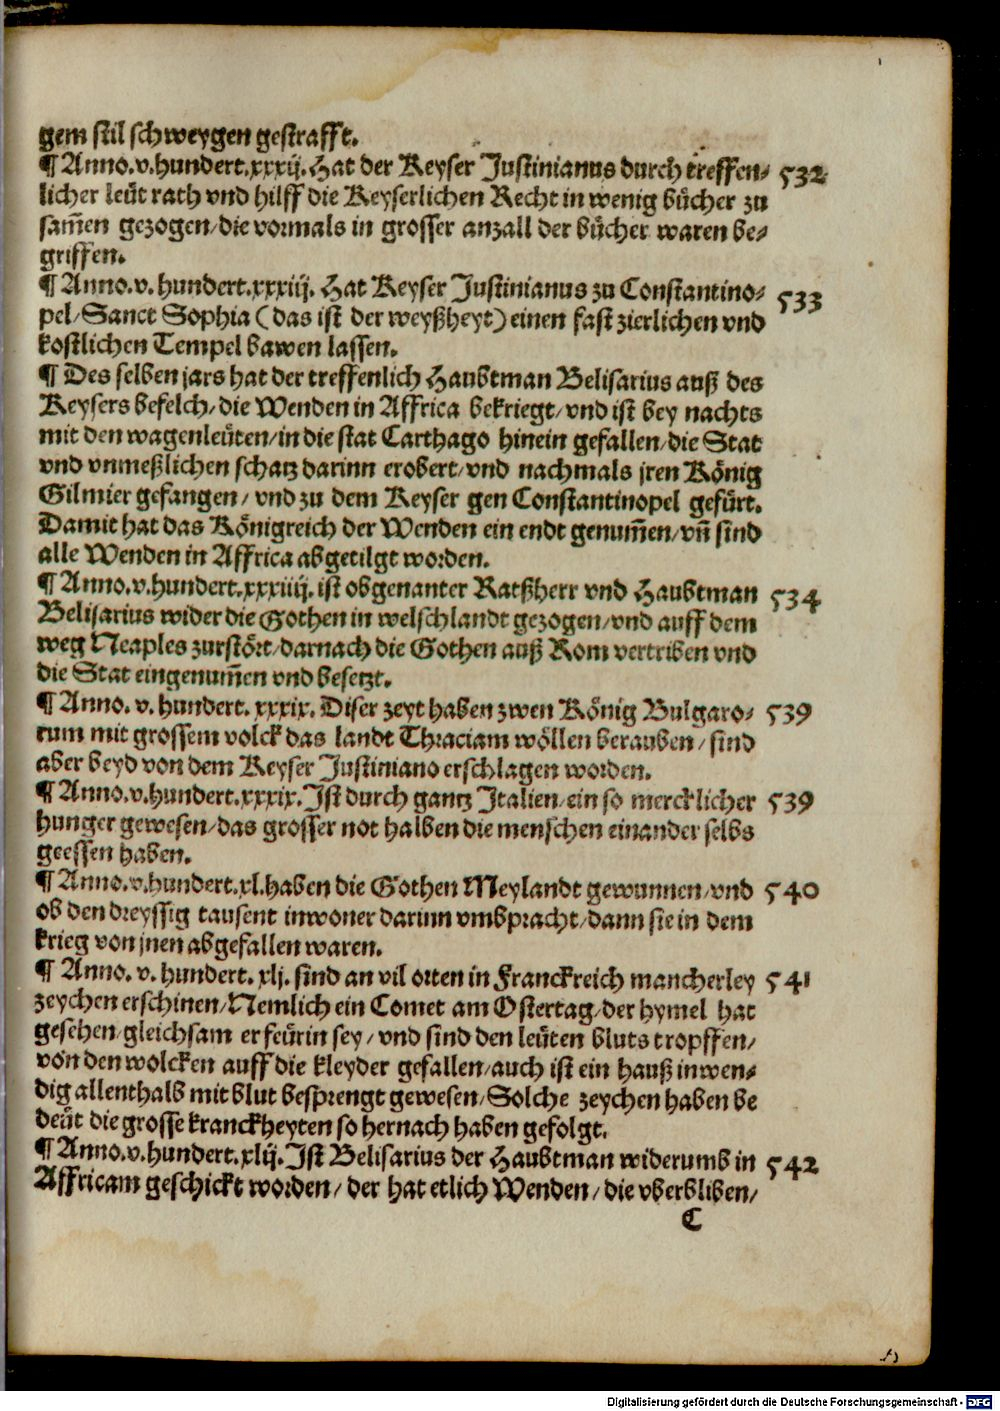 gem stil schweygen gestrafft.
¶ Anno.v.hundert.xxxij. Hat der Keyser Justinianus durch treffen⸗ 532
licher leüt rath vnd hilff die Keyserlichen Recht in wenig bücher zu
sam̃en gezogen/die vormals in grosser anzall der bücher waren be⸗
griffen.
¶ Anno.v.hundert.xxxiij. Hat Keyser Justinianus zu Constantino⸗ 533
pel/Sanct Sophia (das ist der weyßheyt) einen fast zierlichen vnd
kostlichen Tempel bawen lassen.
¶ Des selben jars hat der treffenlich Haubtman Belisarius auß des
Keysers befelch/die Wenden in Affrica bekriegt/vnd ist bey nachts
mit den wagenleüten/in die stat Carthago hinein gefallen/die Stat
vnd vnmeßlichen schatz darinn erobert/vnd nachmals jren König
Gilmier gefangen/vnd zu dem Keyser gen Constantinopel gefürt.
Damit hat das Königreich der Wenden ein endt genum̃en/vn̄ sind
alle Wenden in Affrica abgetilgt worden.
¶ Anno.v.hundert.xxxiiij. ist obgenanter Ratßherr vnd Haubtman 534
Belisarius wider die Gothen in welschlandt gezogen/vnd auff dem
weg Neaples zurstört/darnach die Gothen auß Rom vertriben vnd
die Stat eingenum̃en vnd besetzt.
¶ Anno. v. hundert. xxxix. Diser zeyt haben zwen König Bulgaro⸗ 539
rum mit grossem volck das landt Thraciam wöllen berauben/sind
aber beyd von dem Keyser Justiniano erschlagen worden.
¶ Anno.v.hundert.xxxix. Ist durch gantz Italien/ein so mercklicher 539
hunger gewesen/das grosser not halben die menschen einander selbs
geessen haben.
¶ Anno.v.hundert.xl. haben die Gothen Meylandt gewunnen/vnd 540
ob den dreyssig tausent inwoner darinn vmbpracht/dann sie in dem
krieg von jnen abgefallen waren.
¶ Anno. v. hundert. xlj. sind an vil orten in Franckreich mancherley 541
zeychen erschinen/Nemlich ein Comet am Ostertag/der hymel hat
gesehen/gleichsam er feürin sey/vnd sind den leüten bluts tropffen/
von den wolcken auff die kleyder gefallen/auch ist ein hauß inwen⸗
dig allenthalb mit blut besprengt gewesen/Solche zeychen haben be
deüt die grosse kranckheyten so hernach haben gefolgt.
¶ Anno.v.hundert.xlij. Ist Belisarius der Haubtman widerumb in 542
Affricam geschickt worden/der hat etlich Wenden/die vberbliben/
C
Digitalisierung gefördert durch die Deutsche Forschungsgemeinschaft - DFG